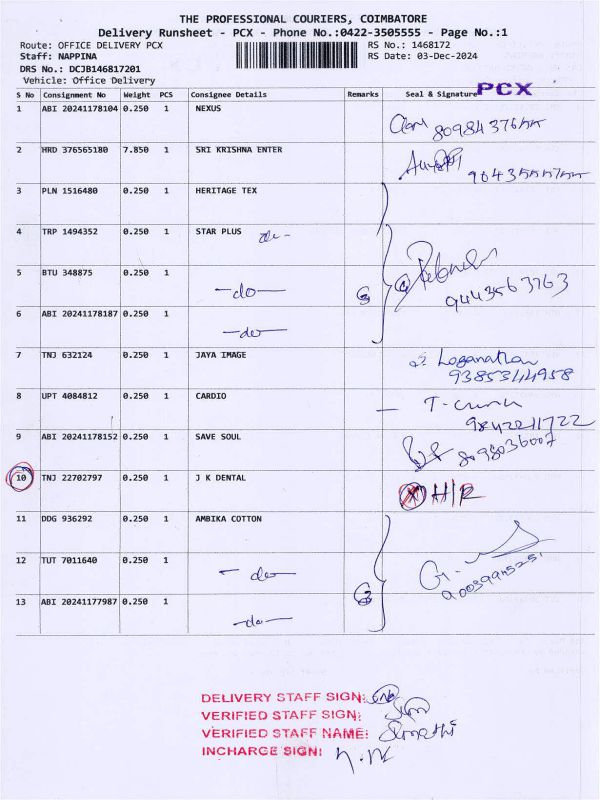 THE PROFESSIONAL COURIERS, COIMBATORE
Delivery Runsheet - PCX - Phone No.:0422-3505555 - Page No.:1
Route: OFFICE DELIVERY PCX RS No.: 1468172
Staff: NAPPINA RS Date: 03-Dec-2024
DRS No.: DCJB146817201
Vehicle: Office Delivery
S No Consignment No Weight PCS Consignee Details Remarks Seal & Signature PCX
1 ABI 20241178104 0.250 1 NEXUS
2 HRD 376565180 7.850 1 SRI KRISHNA ENTER
3 PLN 1516480 0.250 1 HERITAGE TEX
4 TRP 1494352 0.250 1 STAR PLUS do-
5 BTU 348875 0.250 1 -do- 9443563763
6 ABI 20241178187 0.250 1 -do-
7 TNJ 632124 0.250 1 JAYA IMAGE Loganathan
9385344958
8 UPT 4084812 0.250 1 CARDIO
9842211722
9 ABI 20241178152 0.250 1 SAVE SOUL 8098036007
10 TNJ 22702797 0.250 1 J K DENTAL H/R
11 DDG 936292 0.250 1 AMBIKA COTTON
12 TUT 7011640 0.250 1 - do- G.
13 ABI 20241177987 0.250 1 -do-
DELIVERY STAFF SIGN:
VERIFIED STAFF SIGN:
VERIFIED STAFF NAME:
INCHARGE SIGN: